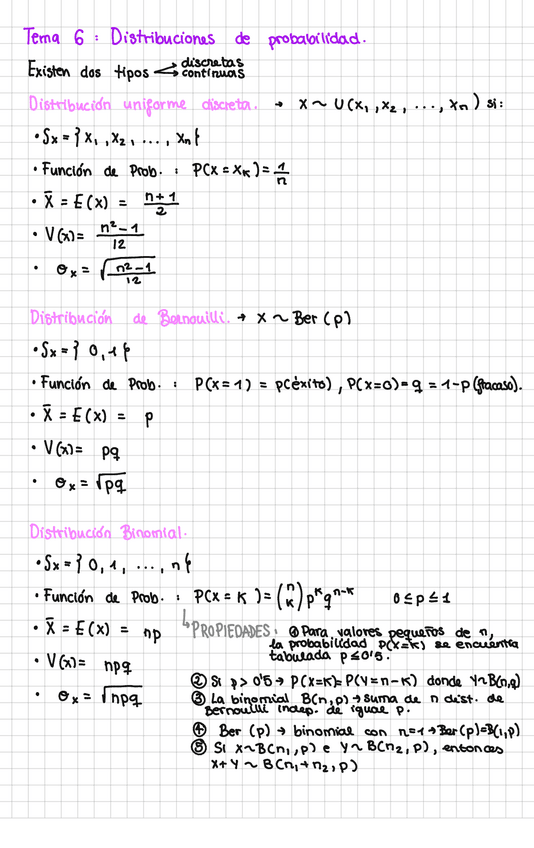 Tema 6 : Distribuciones de probabilidad.
Existen dos tipos < discretas
continuas
Distribución uniforme discreta. → X ~ U(x₁, x₂, ..., xₙ) si:
• Sx = { x₁, x₂, ..., xₙ }
• Función de Prob. : P(X = xₖ) = 1/n
• X̄ = E(x) = (n+1)/2
• V(x) = (n² - 1)/12
• σₓ = √((n² - 1)/12)
Distribución de Bernouilli. → X ~ Ber (p)
• Sx = { 0, 1 }
• Función de Prob. : P(X = 1) = p(éxito), P(X=0) = q = 1-p (fracaso).
• X̄ = E(x) = p
• V(x) = pq
• σₓ = √pq
Distribución Binomial.
• Sx = { 0, 1, ..., n }
• Función de Prob. : P(X = K) = (n K) pᴷ qⁿ⁻ᴷ 0 ≤ p ≤ 1
• X̄ = E(x) = np
↳ PROPIEDADES: ① Para valores pequeños de n,
la probabilidad P(X=K) se encuentra
tabulada p ≤ 0'5.
• V(x) = npq
② Si p > 0'5 → P(X=K) = P(Y = n-K) donde Y~B(n,q)
• σₓ = √npq
③ La binomial B(n,p) → suma de n dist. de
Bernoulli indep. de igual p.
④ Ber (p) → binomial con n=1 → Ber(p)=B(1,p)
⑤ Si X~B(n₁,p) e Y~B(n₂,p), entonces
X+Y ~ B(n₁+n₂, p)